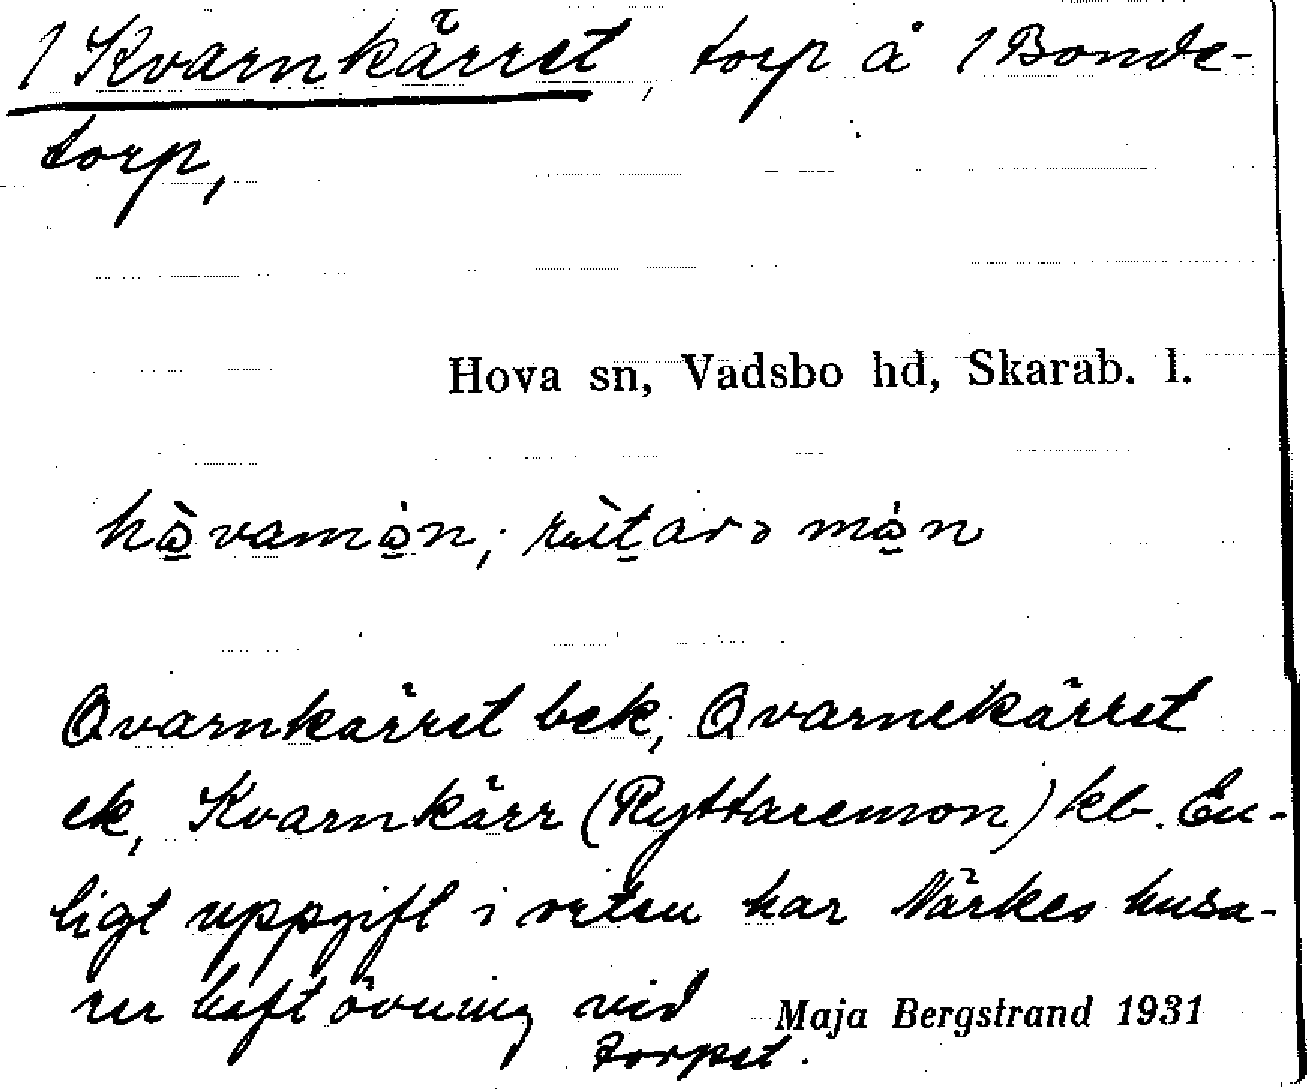 /Kvarnkärret, torp å /Bonde-
torp,
Hova sn, Vadsbo hd, Skarab. l.
hò̱vamȯ̱n;
Qvarnkärret bek, Qvarnekärret
ek, Kvarnkärr (Ryttaremon) kb. En-
ligt uppgift i orten har Närkes husa-
rer haft övning vid
torpet.
Maja Bergstrand 1931